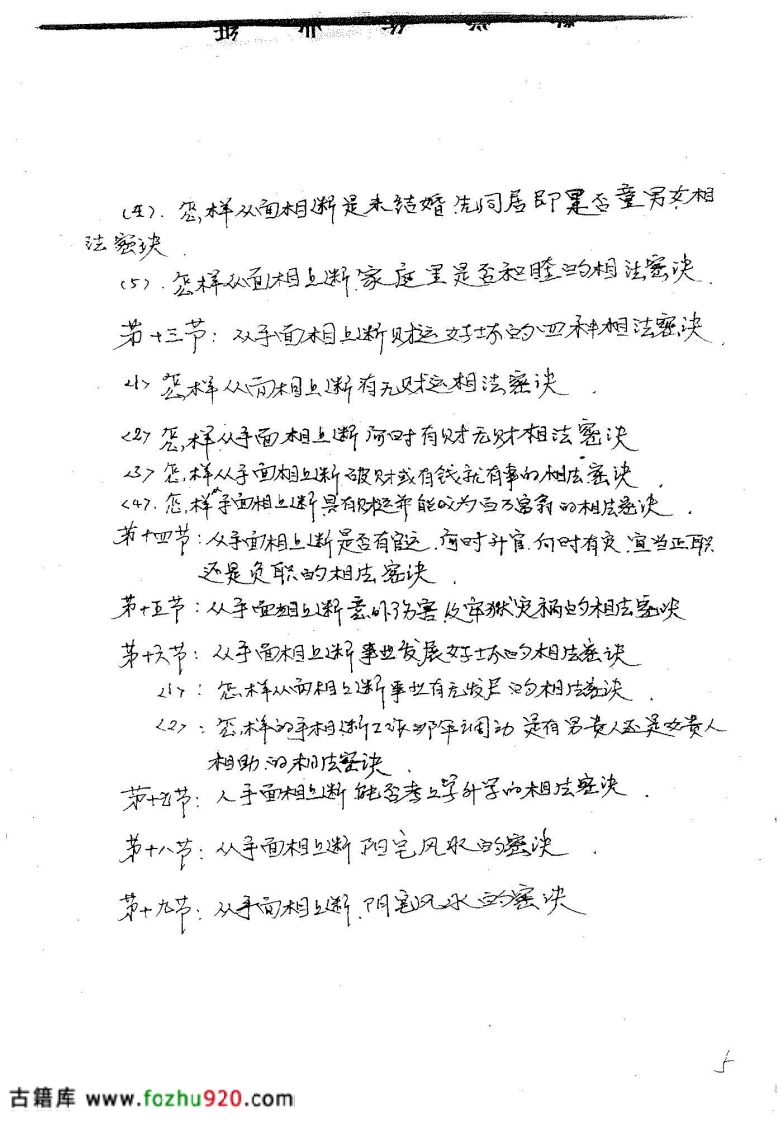 (4). 怎样从面相断是未结婚先同居即是否童男女相
法密诀
(5). 怎样从面相上断家庭里是否和睦的相法密诀.
第十三节: 从手面相上断财运好坏的四种相法密诀.
<1> 怎样从面相上断有无财运相法密诀.
<2> 怎样从手面相上断何时有财无财相法密诀
<3> 怎样从手面相上断破财或有钱就有事的相法密诀.
<4>. 怎样手面相上断具有财运并能成为百万富翁的相法密诀.
第十四节: 从手面相上断是否有官运.何时升官.何时有灾.宜当正职
还是负职的相法密诀.
第十五节: 从手面相上断意外伤害及牢狱灾祸的相法密诀
第十六节: 从手面相上断事业发展好坏的相法密诀
<1>: 怎样从面相上断事业有无发展的相法密诀.
<2>: 怎样的手相断工作哪年调动是有男贵人还是女贵人
相助的相法密诀.
第十七节: 人手面相上断能否考上学升学的相法密诀.
第十八节: 从手面相上断阳宅风水的密诀.
第十九节: 从手面相上断.阴宅风水的密诀
5
古籍库 www.fozhu920.com